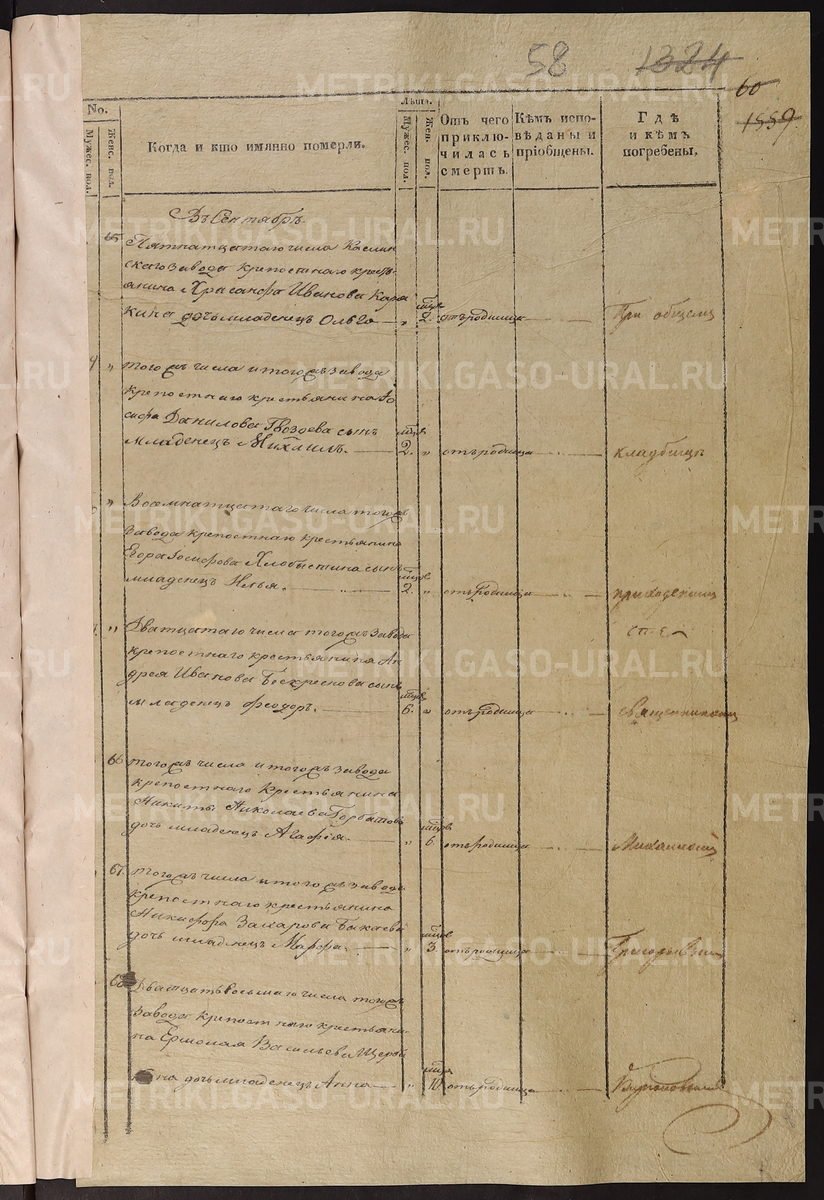 58 1324
60
1559
No. Мужес. пол. Женс. пол.
Когда и кто имянно померли.
Лѣта. Мужес. пол. Жен. пол.
Отъ чего приклю-
чилась смерть.
Кѣмъ испо-
вѣданы и
пріобщены.
Гдѣ
и кѣмъ
погребены.
Въ Сентябрѣ
65 Пятнатцатаго числа Каслин
скаго завода крепостнаго крестья-
янина Хрисанфа Иванова Каря
кина дочь младенец Ольга — „ мцов 2. отъ родимца При общемъ
„ того жъ числа и того жъ завода
крепостнаго крестьянина Ио
сифа Данилова Гвоздева сынъ
младенецъ Михаилъ. — мцов 2. „ отъ родимца кладбищѣ
„ Восемнатцатаго числа того жъ
завода крепостнаго крестьянина
Егора Иосифова Хлобыстина сынъ
младенецъ Илья. мцов 2. „ отъ родимца приходскимъ
„ Дватцатаго числа того жъ завода
крепостнаго крестьянина Ан
дрея Иванова Бескреснова сынъ
младенецъ Феодоръ. мцов 6. „ отъ родимца священникомъ
66 того жъ числа и того жъ завода
крепостнаго крестьянина
Никиты Николаева Горбатова
дочь младенецъ Агафія. — „ мцов 6. отъ родимца Михаиломъ
67. того жъ числа и того жъ завода
крепостнаго крестьянина
Никифора Захарова
дочь младенецъ Марфа. „ мцов 3. отъ родимца
68 Дватцать восьмаго числа того жъ
завода крепостнаго крестьяни-
на Ермолая Васильева Щерба
кова дочь младенецъ Анна — „ мцов 10. отъ родимца
METRIKI.GASO-URAL.RU